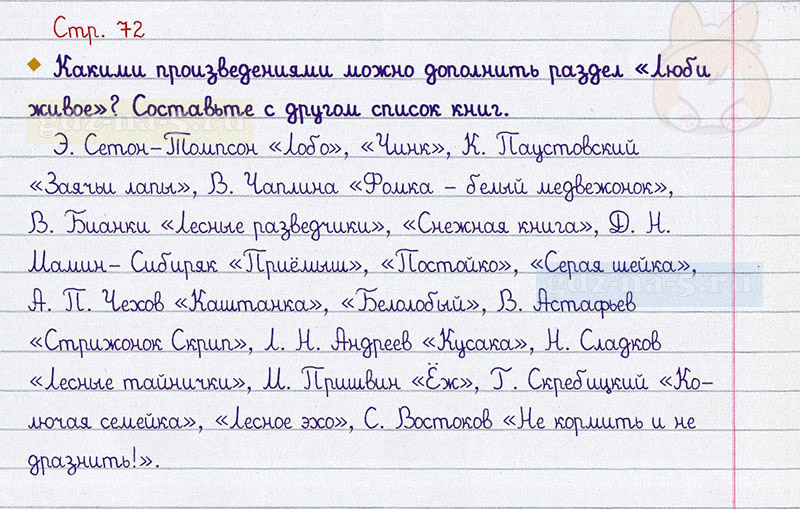 Стр. 72
Какими произведениями можно дополнить раздел «Люби
живое»? Составьте с другом список книг.
Э. Сетон-Томпсон «Лобо», «Чинк», К. Паустовский
«Заячьи лапы», В. Чаплина «Фомка - белый медвежонок»,
В. Бианки «Лесные разведчики», «Снежная книга», Д. Н.
Мамин- Сибиряк «Приёмыш», «Постойко», «Серая шейка»,
А. П. Чехов «Каштанка», «Белолобый», В. Астафьев
«Стрижонок Скрип», Л. Н. Андреев «Кусака», Н. Сладков
«Лесные тайнички», М. Пришвин «Ёж», Г. Скребицкий «Ко-
лючая семейка», «Лесное эхо», С. Востоков «Не кормить и не
дразнить!».
gdz-na-5.ru
gdz-na-5.ru